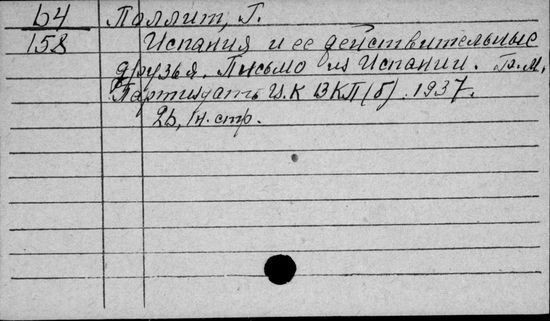 64 Поллит, Г.
158 Испания и ее действительные
друзья. Письмо из Испании.
Партиздат ЦК ВКП(б). 1937.
26, 1н. стр.